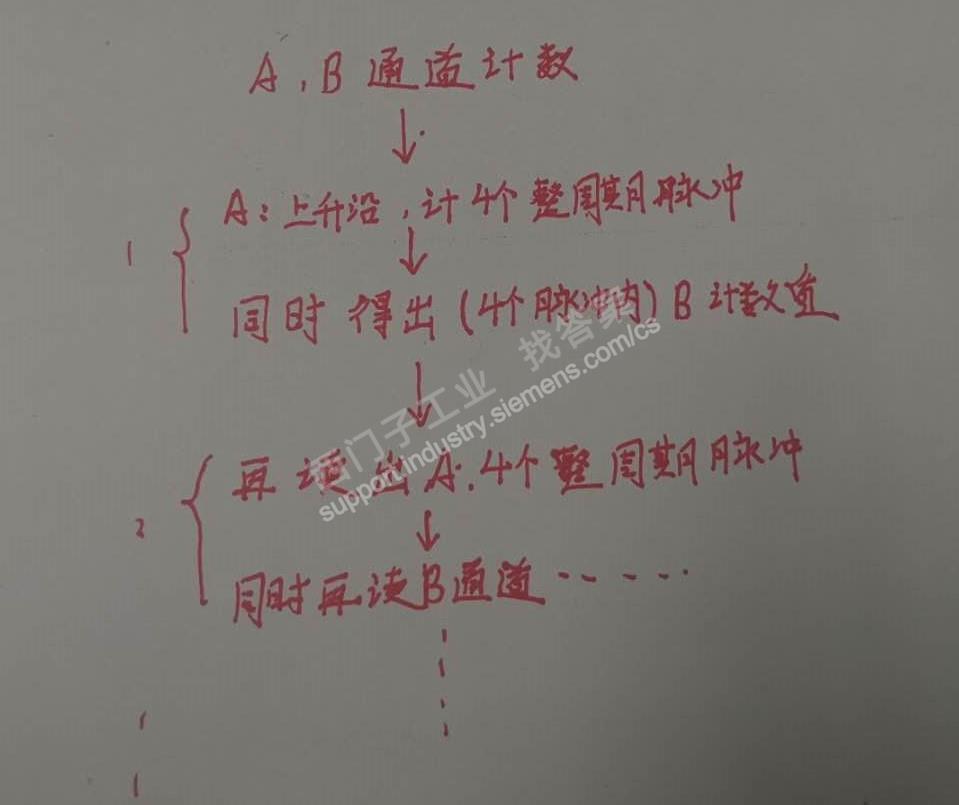 A,B通道计数
↓
1 { A:上升沿,计4个整周期脉冲
↓
同时得出(4个脉冲内)B计数值
↓
西门子工业 找答案
support.industry.siemens.com/cs
2 { 再读出A:4个整周期脉冲
↓
同时再读B通道······